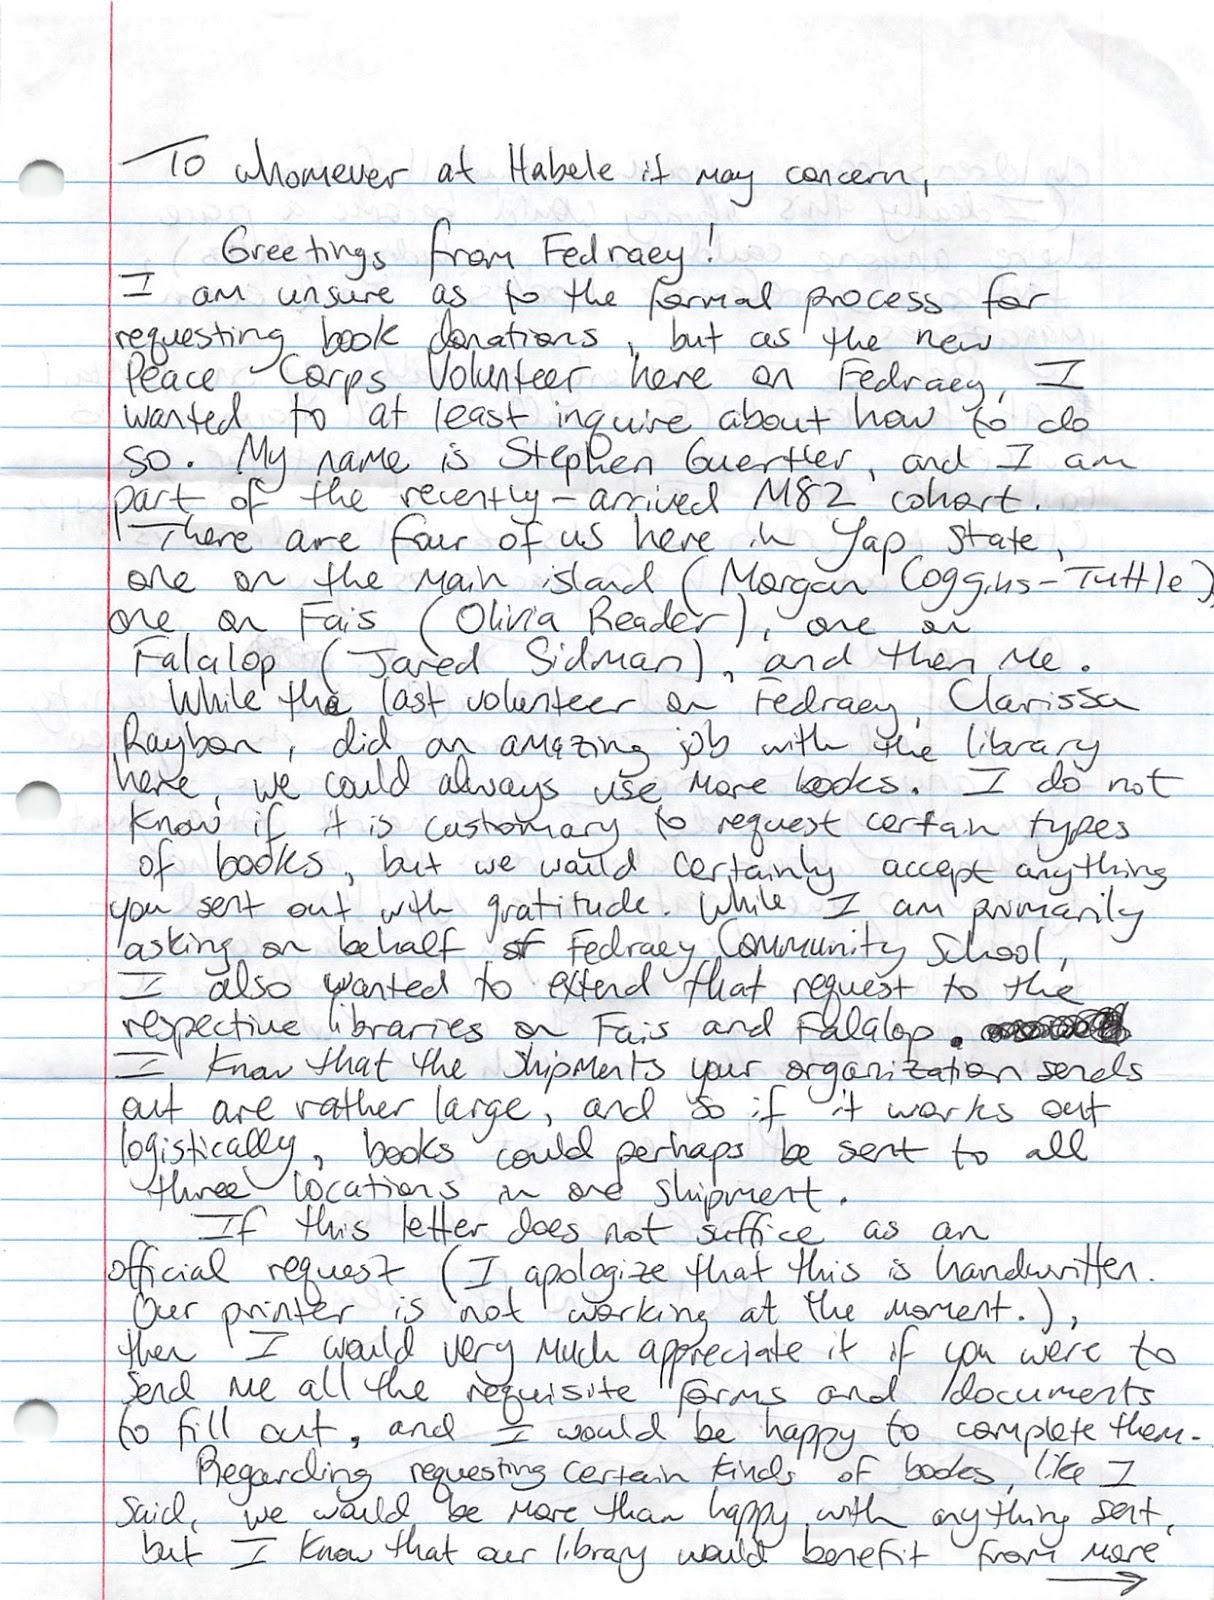 To whomever at Habele it may concern,
Greetings from Fedraey!
I am unsure as to the formal process for
requesting book donations, but as the new
Peace Corps Volunteer here on Fedraey, I
wanted to at least inquire about how to do
so. My name is Stephen Guertler, and I am
part of the recently-arrived M82 cohort.
There are four of us here in Yap State,
one on the main island (Morgan Coggins-Tuttle),
one on Fais (Olivia Reader), one on
Falalop (Jared Sidman), and then me.
While the last volunteer on Fedraey, Clarissa
Raybon, did an amazing job with the library
here, we could always use more books. I do not
know if it is customary to request certain types
of books, but we would certainly accept anything
you sent out with gratitude. While I am primarily
asking on behalf of Fedraey Community School,
I also wanted to extend that request to the
respective libraries on Fais and Falalop.
I know that the shipments your organization sends
out are rather large, and so if it works out
logistically, books could perhaps be sent to all
three locations in one shipment.
If this letter does not suffice as an
official request (I apologize that this is handwritten.
Our printer is not working at the moment.),
then I would very much appreciate it if you were to
send me all the requisite forms and documents
to fill out, and I would be happy to complete them.
Regarding requesting certain kinds of books, like I
said, we would be more than happy with anything sent,
but I know that our library would benefit from more
→